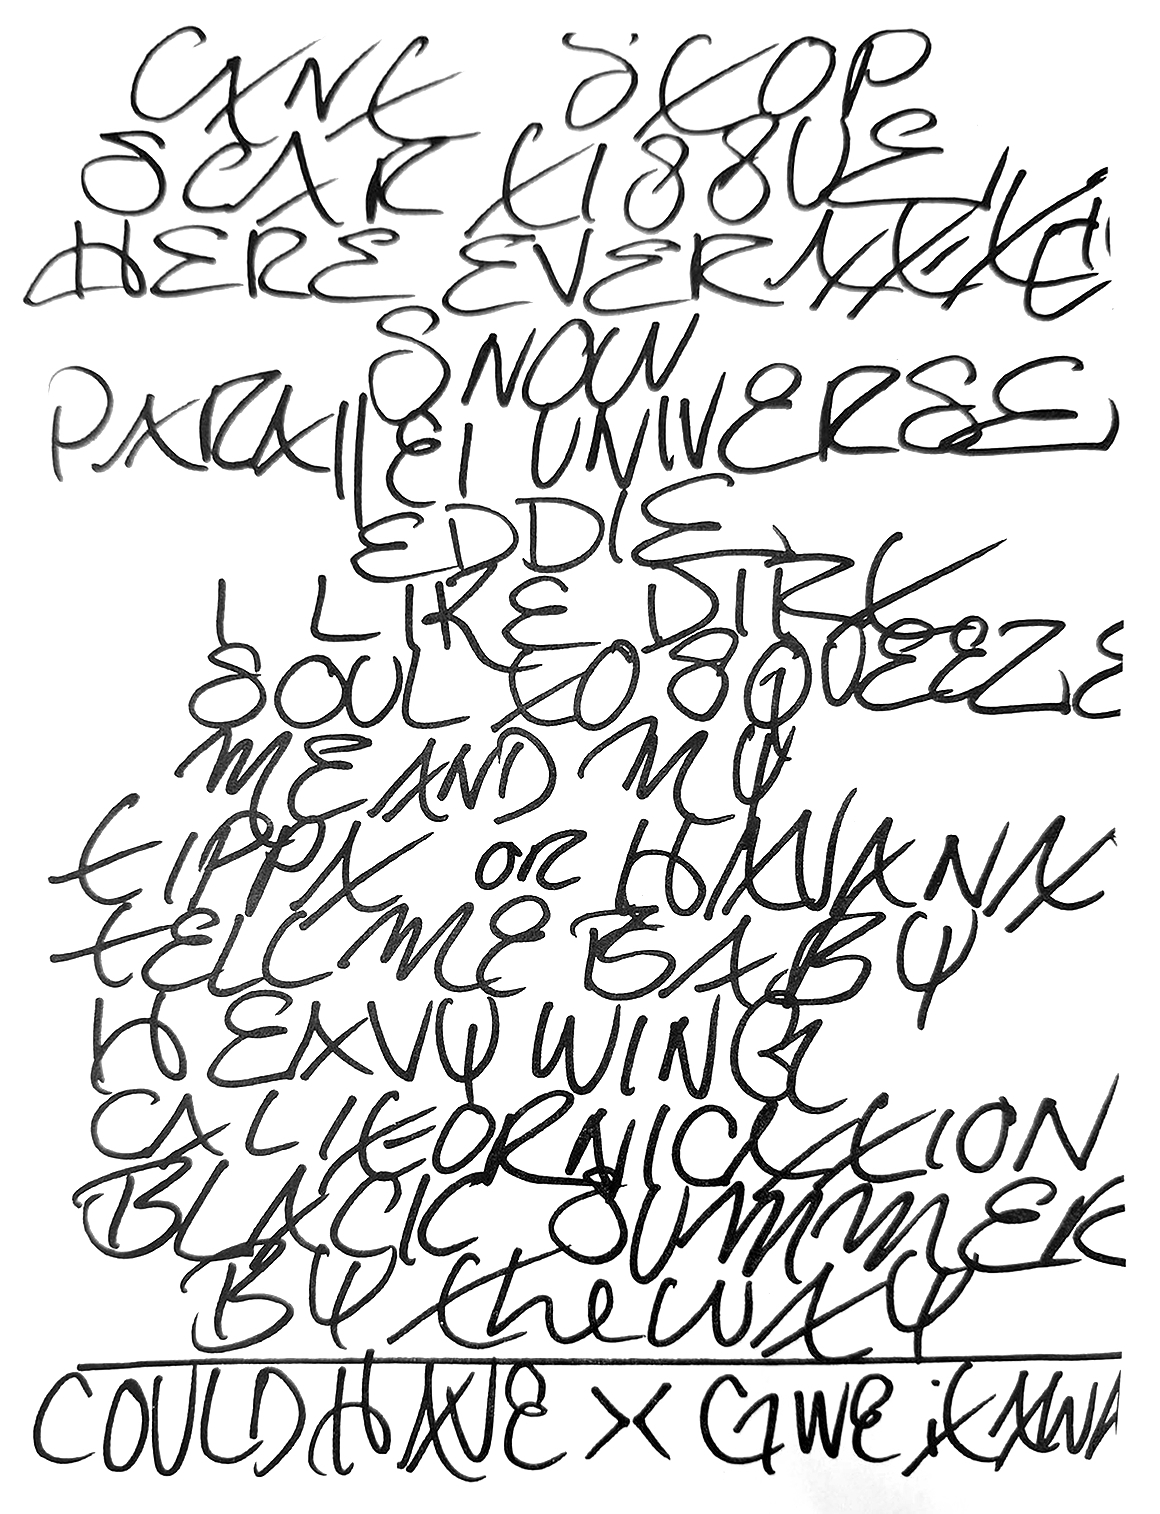 CANT STOP
SCAR TISSUE
HERE EVER AFTER
SNOW
PARALLEL UNIVERSE
EDDIE
I LIKE DIRT
SOUL TO SQUEEZE
ME AND MY
TIPPA OR HAVANA
TELL ME BABY
HEAVY WING
CALIFORNICATION
BLACK SUMMER
BY the WAY
COULD HAVE X GIVE it AWA